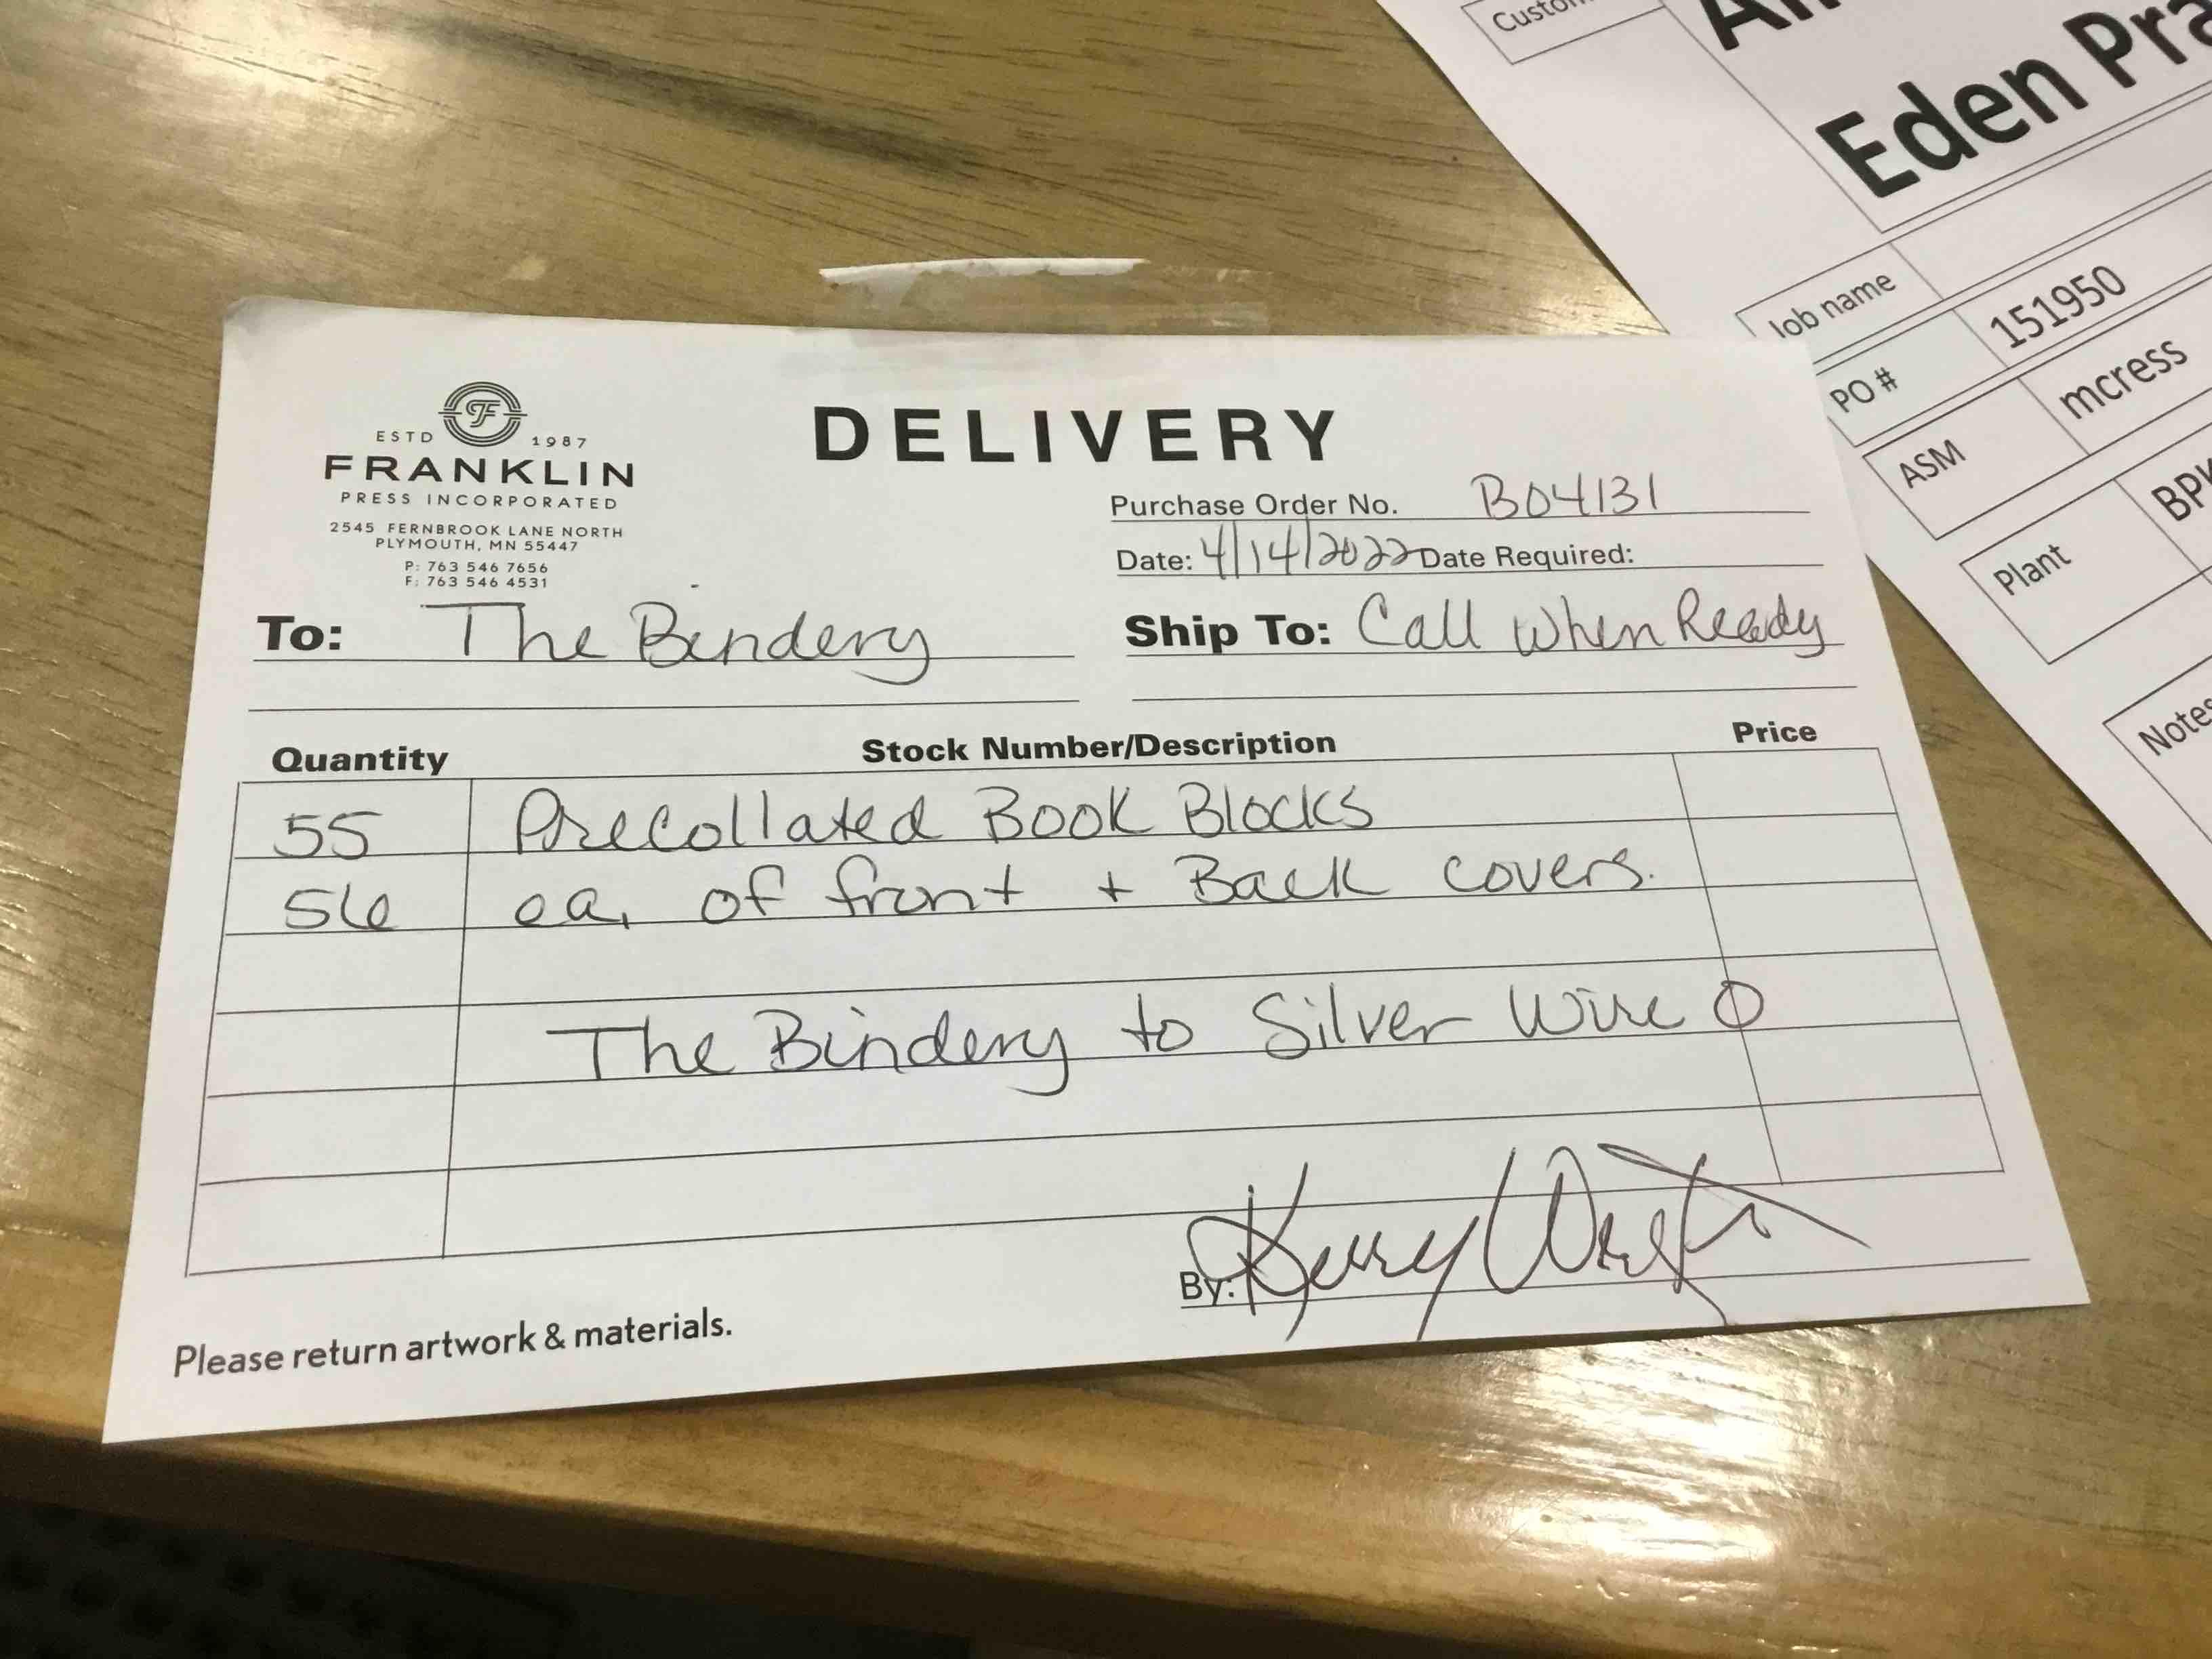 ESTD 1987
FRANKLIN
PRESS INCORPORATED
2545 FERNBROOK LANE NORTH
PLYMOUTH, MN 55447
P: 763 546 7656
F: 763 546 4531
DELIVERY
Purchase Order No. B04131
Date: 4/14/2022 Date Required:
To: The Bindery
Ship To: Call when Ready
Quantity Stock Number/Description Price
55 Precollated Book Blocks
56 ea. of front + Back covers.
The Bindery to Silver Wire O
By: Kerry
Please return artwork & materials.
Eden
Job name
PO # 151950
ASM mcress
Plant
Notes